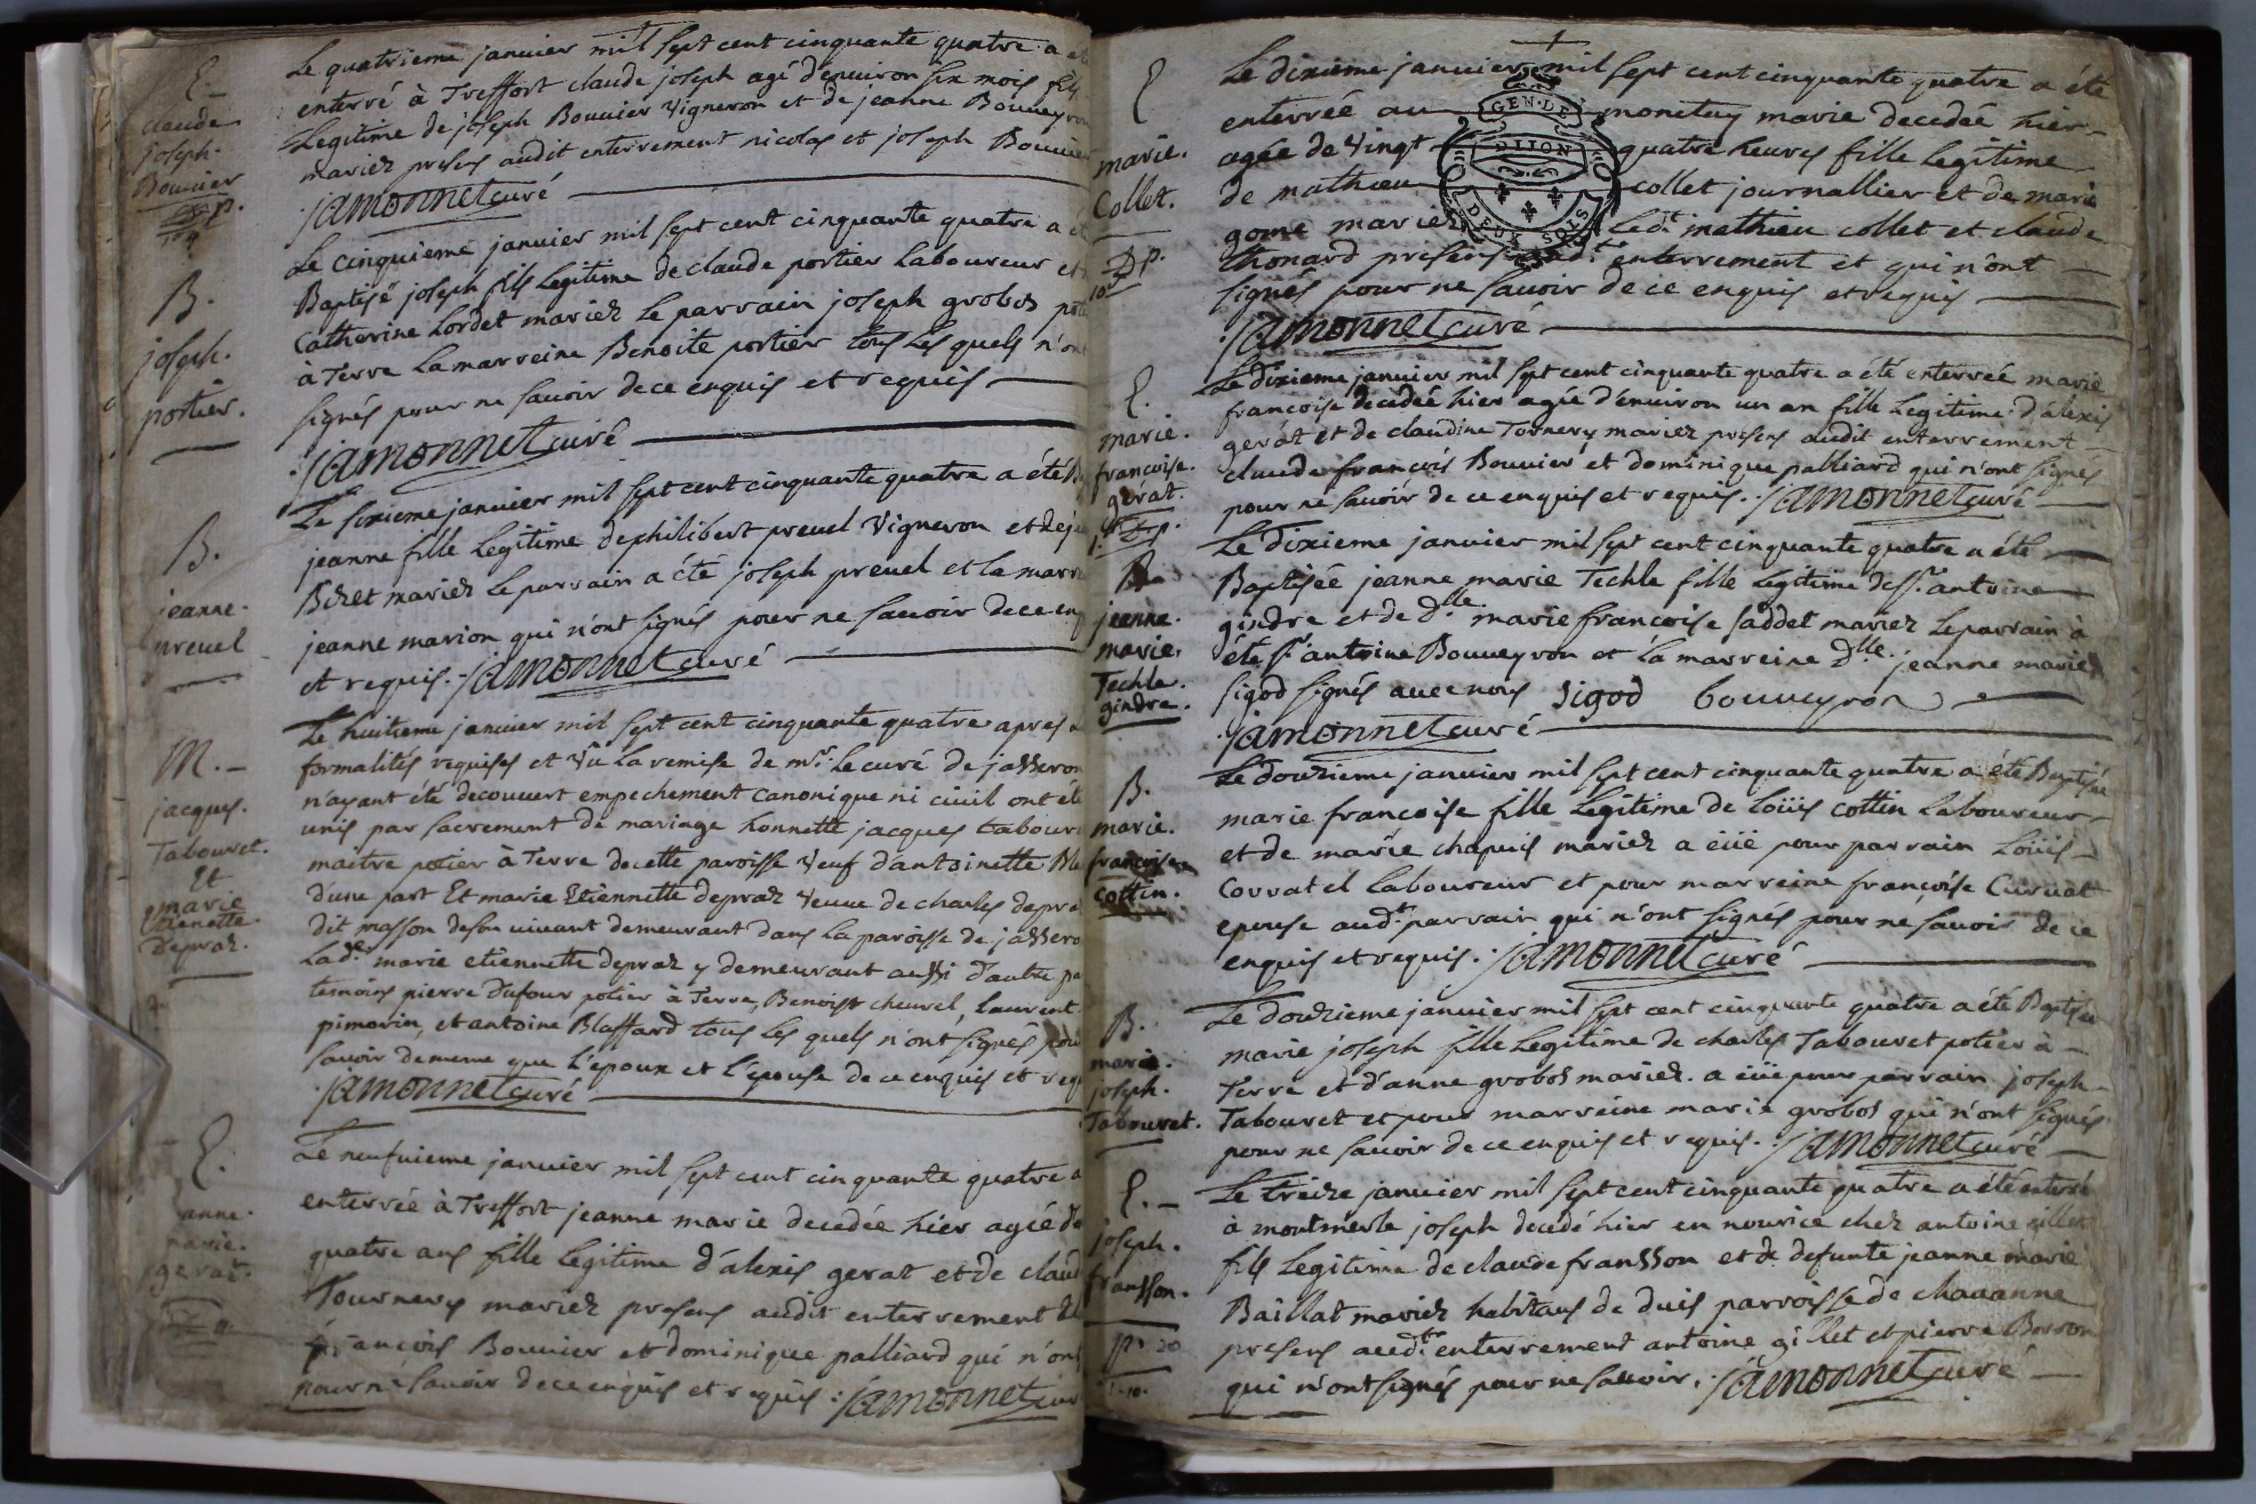 E.
claude
joseph.
Bouvier
Le quatrieme janvier mil sept cent cinquante quatre a eté
enterré à Treffort claude joseph agé d'environ six mois fils
Legitime de joseph Bouvier Vigneron et de jeanne Bouveyron
mariez presens audit enterrement nicolas et joseph Bouvier
jamonnet curé
B.
joseph.
portier.
Le cinquieme janvier mil sept cent cinquante quatre a été
Baptisé joseph fils Legitime de claude portier Laboureur et
Catherine Lordet mariez Le parrain joseph grobos potier
à Terre La marreine Benoite portier tous Les quels n'ont
signés pour ne savoir de ce enquis et requis
jamonnet curé
B.
jeanne.
preuel
Le sixieme janvier mil sept cent cinquante quatre a été
jeanne fille Legitime de philibert preuel Vigneron et de
Bizet mariez Le parrain a été joseph preuel et La marreine
jeanne marion qui n'ont signés pour ne savoir de ce enquis
et requis. jamonnet curé
M.
jacques.
Tabouret.
Et
marie
Etienette
Depraz.
Le huitieme janvier mil sept cent cinquante quatre apres
formalités requises et Vu La remise de mr. Le curé de jasseron
n'ayant été decouvert empechement canonique ni civil ont été
unis par sacrement de mariage honnette jacques tabouret
maitre potier à Terre de cette paroisse Veuf d'antoinette
d'une part Et marie Etiennette depraz Veuve de charles depraz
dit masson de son vivant demeurant dans La paroisse de jasseron
Lad.e marie etiennette depraz y demeurant aussi d'autre part
temoins pierre Dufour potier à Terre, Benoist cheurel, Laurent
pimorin, et antoine Blaffard tous Les quels n'ont signés pour
savoir de meme que L'epoux et L'epouse de ce enquis et requis
jamonnet curé
E.
jeanne.
marie.
gerat.
Le neufvieme janvier mil sept cent cinquante quatre a
enterrée à Treffort jeanne marie decedée hier agée de
quatre ans fille Legitime d'alexis gerat et de claudine
Tournery mariez presens audit enterrement
françois Bouvier et dominique palliard qui n'ont
pour ne savoir de ce enquis et requis. jamonnet curé
E
marie.
Collet.
GEN. DE
DIJON
DEUX SOLS
Le dixieme janvier mil sept cent cinquante quatre a été
enterrée au monetay marie decedée hier
agée de Vingt quatre heures fille Legitime
de mathieu collet journallier et de marie
gome mariez Led.t mathieu collet et claude
Thonard presens aud.t enterrement et qui n'ont
signés pour ne savoir de ce enquis et requis
jamonnet curé
E.
marie.
françoise.
gerat.
Le dixieme janvier mil sept cent cinquante quatre a été enterrée marie
francoise decedée hier agée d'environ un an fille Legitime d'alexis
gerat et de claudine Tornery mariez presens audit enterrement
claude françois Bouvier et dominique palliard qui n'ont signés
pour ne savoir de ce enquis et requis. jamonnet curé
B
jeanne.
marie.
Techle.
gindre.
Le dixieme janvier mil sept cent cinquante quatre a été
Baptisée jeanne marie Techle fille Legitime de sr. antoine
gindre et de d.lle marie francoise saddet mariez Le parrain à
été sr. antoine Bouveyron et La marreine d.lle jeanne marie
sigod signés avec nous Sigod bouveyron
jamonnet curé
B.
marie.
francoise.
cottin.
Le douzieme janvier mil sept cent cinquante quatre a été Baptisée
marie francoise fille Legitime de Loüis cottin Laboureur
et de marie chapuis mariez a eüe pour parrain Loüis
Corratel Laboureur et pour marreine françoise Curuat
epouse aud.t parrain qui n'ont signés pour ne savoir de ce
enquis et requis. jamonnet curé
B.
marie.
joseph.
Tabouret.
Le douzieme janvier mil sept cent cinquante quatre a été Baptisée
marie joseph fille Legitime de charles Tabouret potier à
Terre et d'anne grobos mariez. a eüe pour parrain joseph
Tabouret et pour marreine marie grobos qui n'ont signés
pour ne savoir de ce enquis et requis. jamonnet curé
E.
joseph.
fransson.
Le treize janvier mil sept cent cinquante quatre a été enterré
à montmerle joseph decedé hier en nourice chez antoine gillet
fils Legitime de claude fransson et de defunte jeanne marie
Baillat mariez habitans de duis parroisse de chavanne
presens aud.t enterrement antoine gillet et pierre Borron
qui n'ont signés pour ne savoir. jamonnet curé